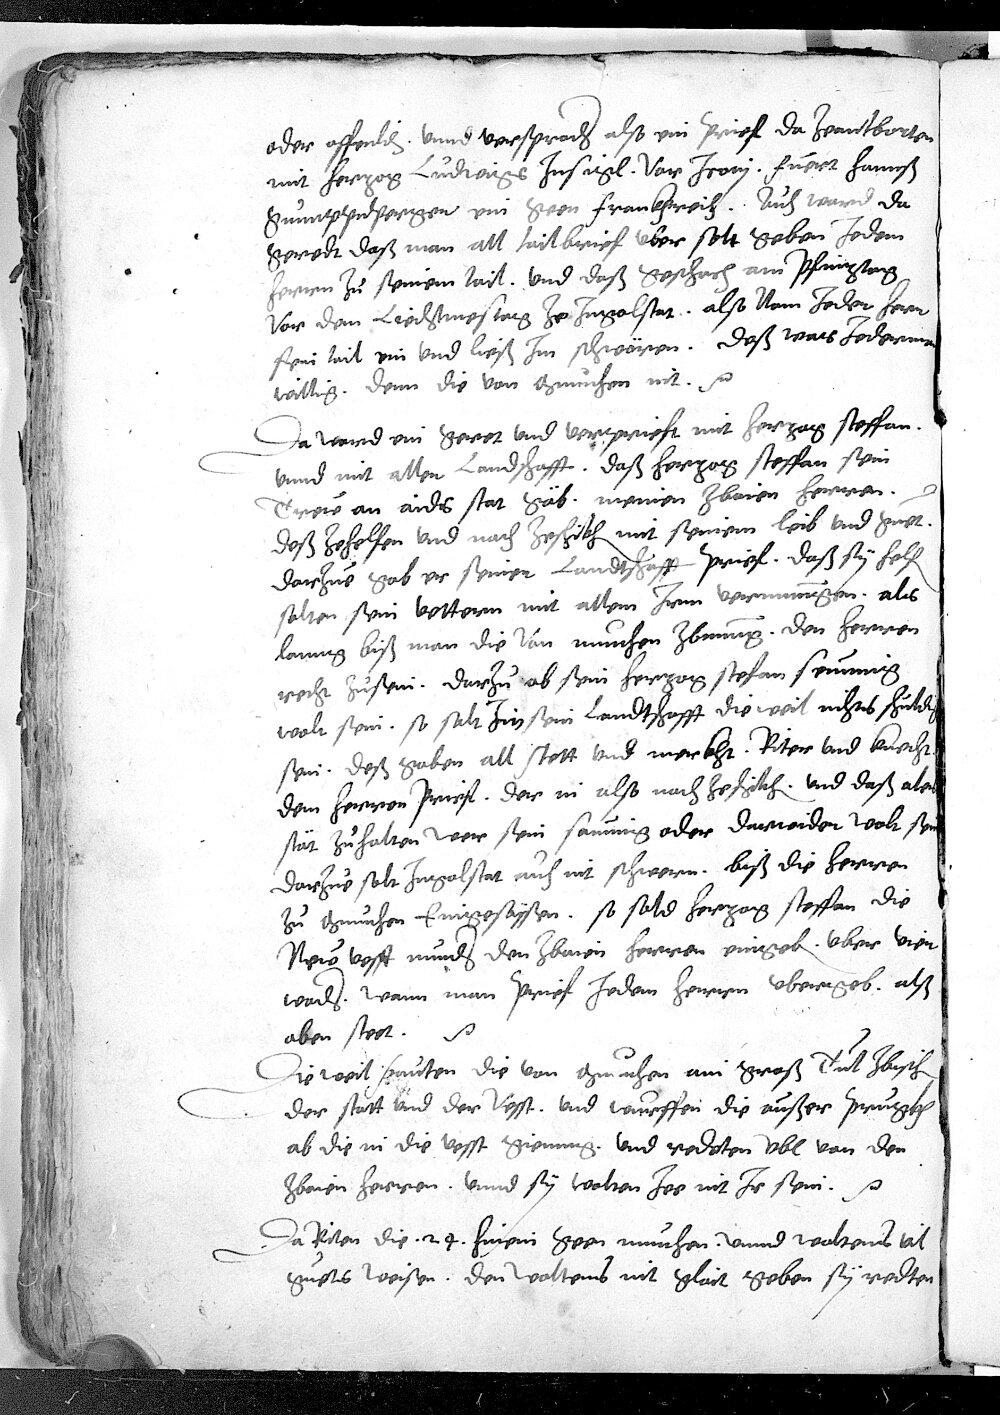 oder offenlich. unnd versprach also ein prief da zeantborten
mit herzog Ludwigs Insigl. Var Irong. fuert hanns
gumppenpergen ein geen frankhreich. Auch ward da
geredt daß man all tailbrief uber solt geben Jedem
herrn zu seinem tail. und daß geschach am Pfingtag
Vor dem Liechtmestag ze Ingolstat. also Nam Jeder herr
sein tail ein und ließ Im schwören. Deß was Jederman
willig. denn die von munchen nit.
Da ward ein geret und verprieft mit herzog steffan.
unnd mit aller Landschafft. daß herzog steffan sein
Treue an aides stat gäb. meinen zbaien herren.
deß zehelfen und nach zeschikh mit seinem leib und guet.
darzue gab er seiner Landtschafft prief. daß sy helf
solten sein vettern mit allem Irm vermuugen. als
lanng biß man die Von munchen zbinng. den herren
recht zusein. darzu ob sein herzog stefan seumig
wolt sein. so solt Im sein Landtschafft die weil nichts schuldig
sein. deß gaben all stett und merkht. Riter und knecht
dem herren Prief. der in also nach zeschikh. und daß alles
stät zu halten wer sein saumig oder darwider wolt sein
darzue solt Ingolstat auch nit schwern. biß die herren
zu munchen Eingesässen. so sold herzog steffan die
Neue vesst munch den zbaien herren eingeb. uber vier
woch. wann man prief Jedem herren ubergeb. alß
oben steet.
Die weil pauten die von munchen ain groß Tul zbisch
der statt und der Vesst. und wurffen die ausser prugkh
ab die in die vesst gienng. und redeten ubl von den
zbaien herren. unnd sy wolten Ier nit Ir sein.
Da Riten die .24. hinein geen munchen. unnd woltens vil
guets weisen. den woltens nit glait geben sy redten